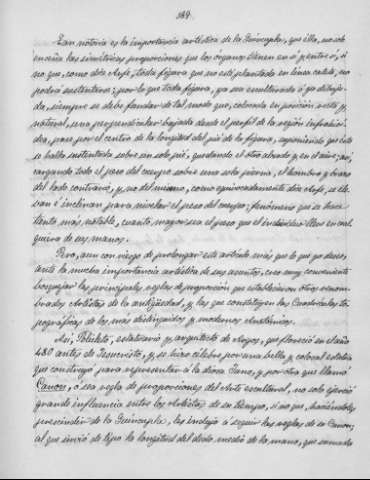 189.
Tan notoria es la importancia artística de la Guincapla, que ella, no solo
enseña las simétricas proporciones que los órganos tienen en sí y entre sí, si
no que, como dice Aufe, toda figura que no esté plantada en línea
podrá sustentarse; por lo que toda figura, ya sea esculturada ó ya dibuja-
da, siempre se debe fundar de tal modo que, colocada en posición recta y
natural, una perpendicular bajada desde el perfil de la región
dea, pase por el centro de la longitud del pié de la figura, suponiendo que ésta
se halla sustentada sobre un solo pié, quedando el otro alzado y en el aire; así,
cargando todo el peso del cuerpo sobre una sola pierna, el hombro y brazo
del lado contrario, y no del mismo, como equivocadamente dice Aufe, se ele-
van é inclinan para nivelar el peso del cuerpo; fenómeno que se hace
tanto más notable, cuanto mayor sea el peso que el individuo lleve en cual-
quiera de sus manos.
Pero, aun con riesgo de prolongar este artículo más que lo que yo deseo,
ante la mucha importancia artística de sus asuntos, creo muy conveniente
bosquejar las principales reglas de proporción que establecieron otros renom-
brados Artistas de la antigüedad, y las que constituyen las Cuadrículas to-
pográficas de los más distinguidos y modernos Anatómicos.
Así, Polícleto, estatuario y arquitecto de Argos, que floreció en el año
480 antes de Jesucristo, y se hizo célebre por una bella y colosal estatua
que construyó para representar á la diosa Juno, y por otra que llamó
Canon, ó sea regla de proporciones del Arte escultural, no solo ejerció
grande influencia entre los Artistas de su tiempo, si no que, haciéndoles
prescindir de la Guincapla, les indujo á seguir las reglas de su Canon;
al que sirvió de tipo la longitud del dedo medio de la mano, que sumado